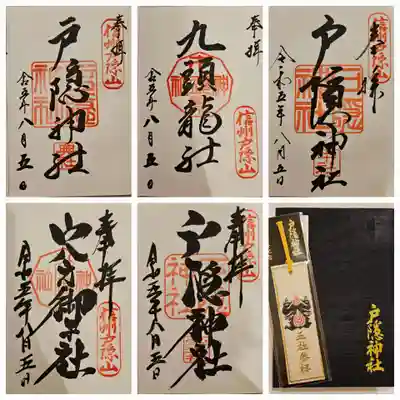 奉拝
信州戸隠山
戸隠神社
令和五年八月五日
奉拝
九頭龍社
信州戸隠山
令和五年八月五日
奉拝
戸隠神社
令和五年八月五日
奉拝
火之御子社
信州戸隠山
令和五年八月五日
奉拝
信州戸隠山
戸隠神社
令和五年八月五日
戸隠神社
五社参拝
戸隠神社